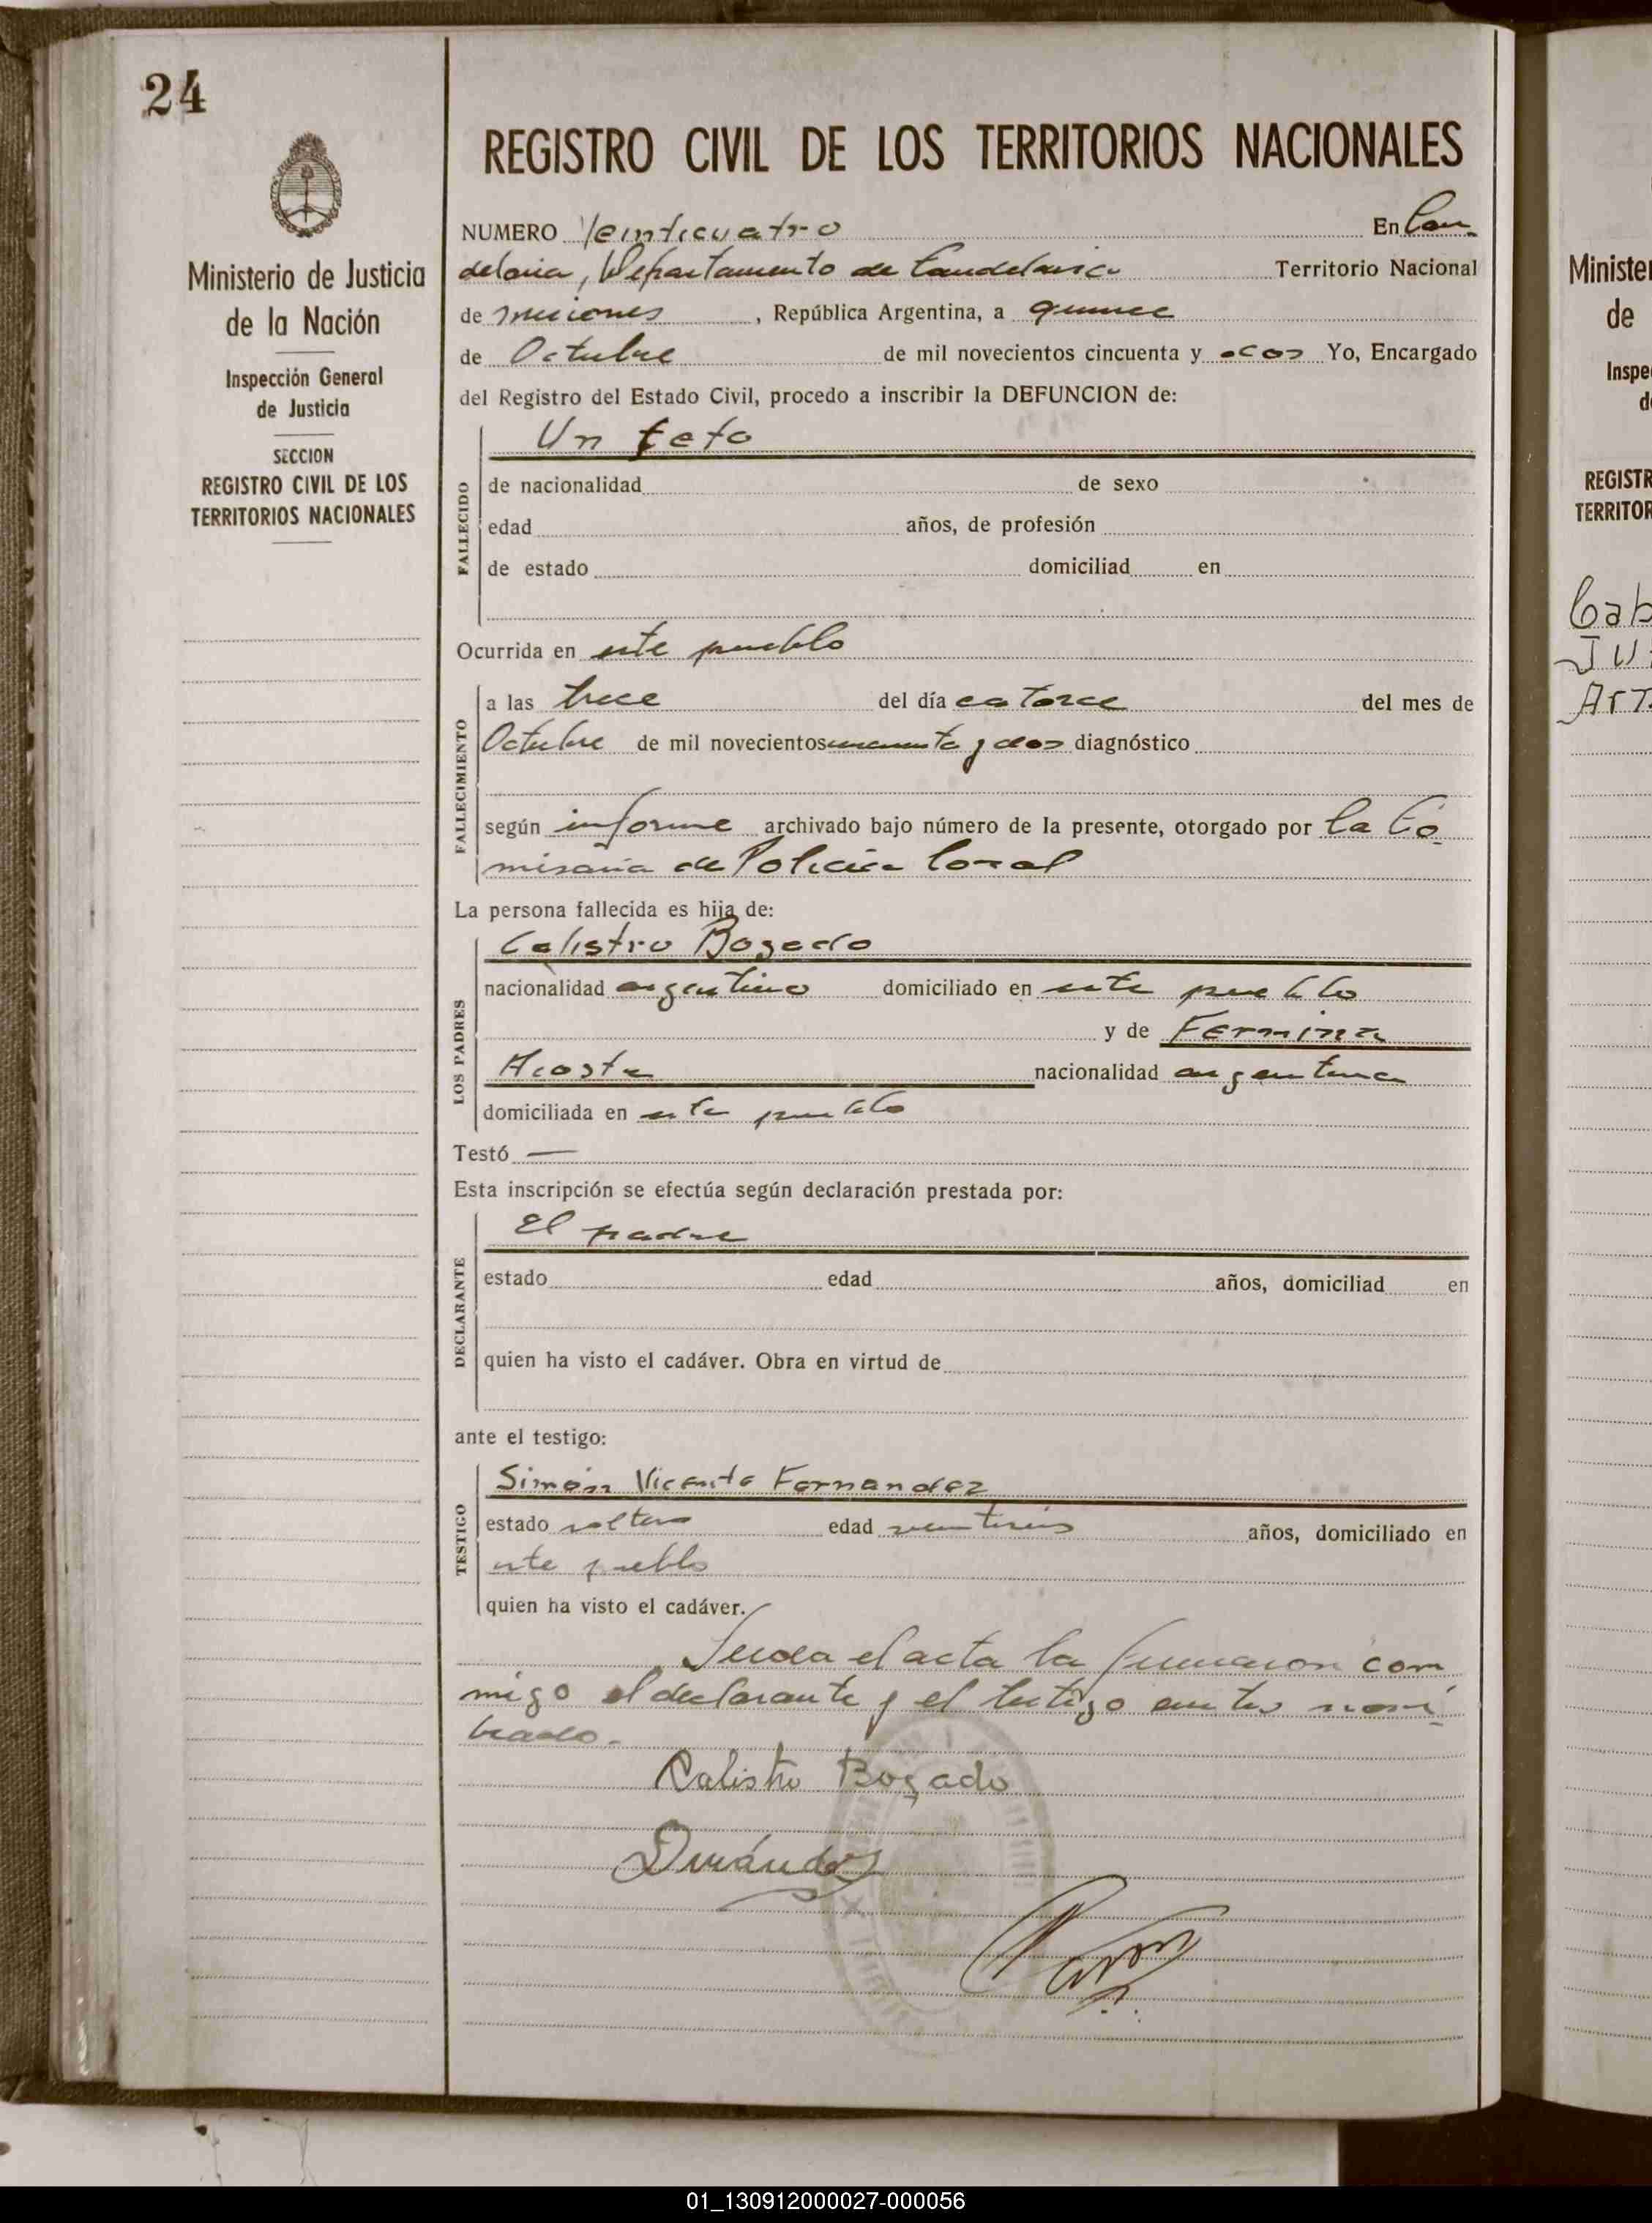 24
Ministerio de Justicia
de la Nación
Inspección General
de Justicia
SECCION
REGISTRO CIVIL DE LOS
TERRITORIOS NACIONALES
REGISTRO CIVIL DE LOS TERRITORIOS NACIONALES
NUMERO Veinticuatro En Can-
delaria, Departamento de Candelaria Territorio Nacional
de Misiones, República Argentina, a quince
de Octubre de mil novecientos cincuenta y dos Yo, Encargado
del Registro del Estado Civil, procedo a inscribir la DEFUNCION de:
Un feto
FALLECIDO
de nacionalidad de sexo
edad años, de profesión
de estado domiciliad en
Ocurrida en este pueblo
FALLECIMIENTO
a las trece del día catorce del mes de
Octubre de mil novecientos cincuenta y dos diagnóstico
según informe archivado bajo número de la presente, otorgado por la Co-
misaria de Policia local
La persona fallecida es hija de:
LOS PADRES
Calistro Bogado
nacionalidad argentino domiciliado en este pueblo
y de Fermina
Acosta nacionalidad argentina
domiciliada en este pueblo
Testó —
Esta inscripción se efectúa según declaración prestada por:
DECLARANTE
El padre
estado edad años, domiciliad en
quien ha visto el cadáver. Obra en virtud de
ante el testigo:
TESTIGO
Simón Vicente Fernandez
estado soltero edad años, domiciliado en
este pueblo
quien ha visto el cadáver.
el acta la con
migo el declarante y el testigo nom-
brado.
Calistro Bogado
Ministe
de
Inspe
d
REGISTR
TERRITOR
Cab
Art
01_130912000027-000056